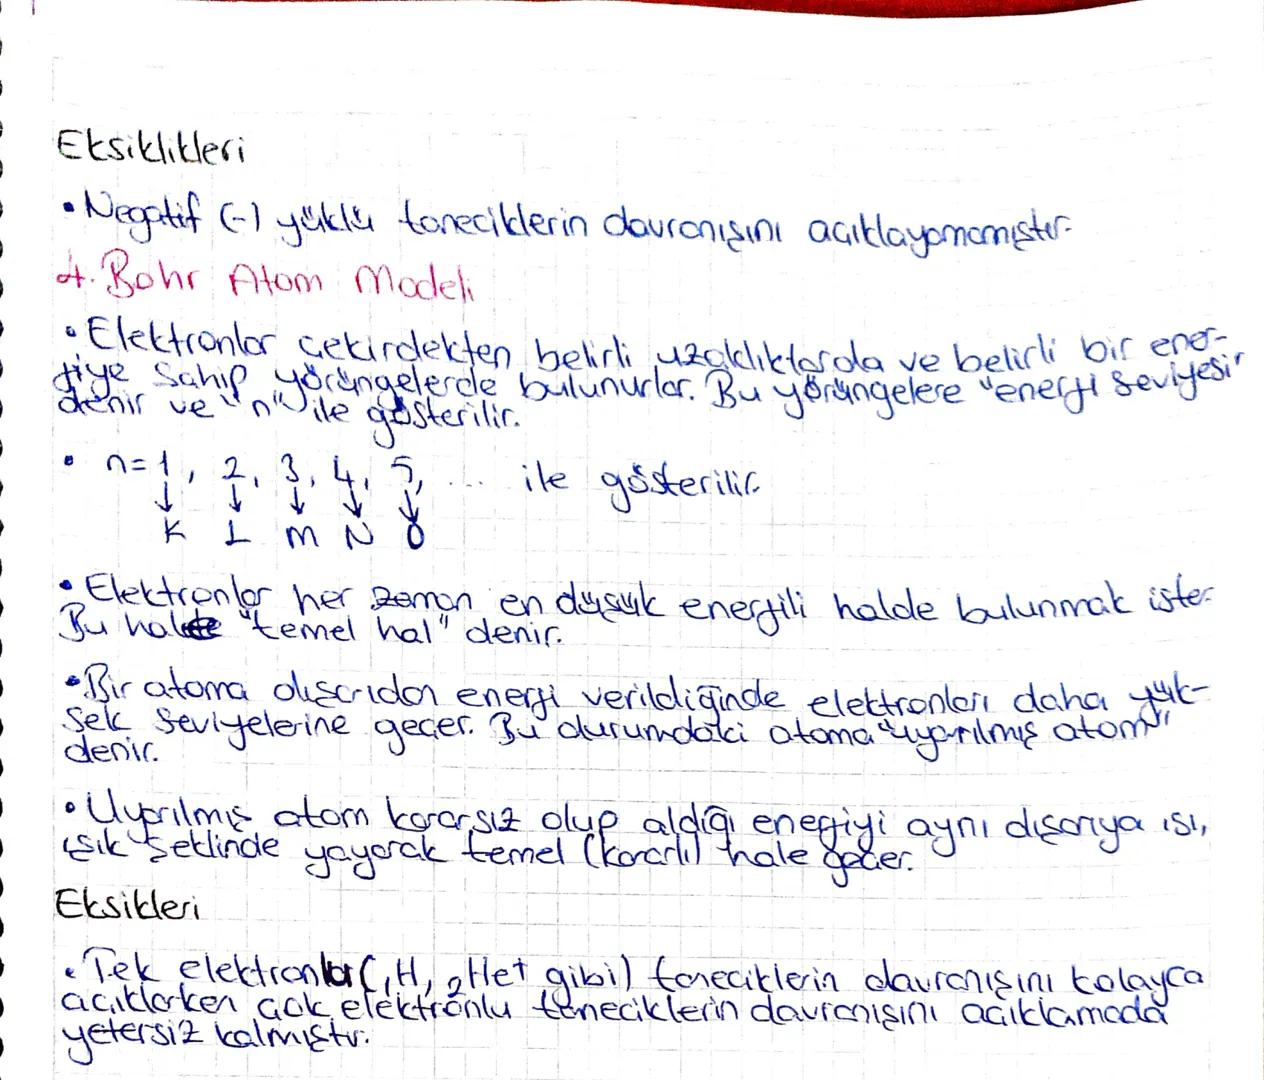 Eksiklikleri
• Negatif (-) yüklü taneciklerin davranışını açıklayamamıştır.
4. Bohr Atom Modeli
• Elektronlar çekirdekten belirli uzaklıklarda ve belirli bir ener-
jiye sahip yörüngelerde bulunurlar. Bu yörüngelere "enerji seviyesi"
denir ve "n" ile gösterilir.
• n=1, 2, 3, 4, 5, ... ile gösterilir.
↓ ↓ ↓ ↓ ↓
K L M N O
• Elektronlar her zaman en düşük enerjili halde bulunmak ister.
Bu hale "temel hal" denir.
• Bir atoma dışarıdan energi verildiğinde elektronları daha yük-
sek seviyelerine geçer. Bu durumdaki atoma "uyarılmış atom"
denir.
• Uyarılmış atom kararsız olup aldığı enerjiyi aynı dışarıya ısı,
ışık şeklinde yayarak temel (kararlı) hale geçer.
Eksikleri
• Tek elektronlar (₁H, ₂He+ gibi) taneciklerin davranışını kolayca
açıklarken çok elektronlu taneciklerin davranışını açıklamada
yetersiz kalmıştır.